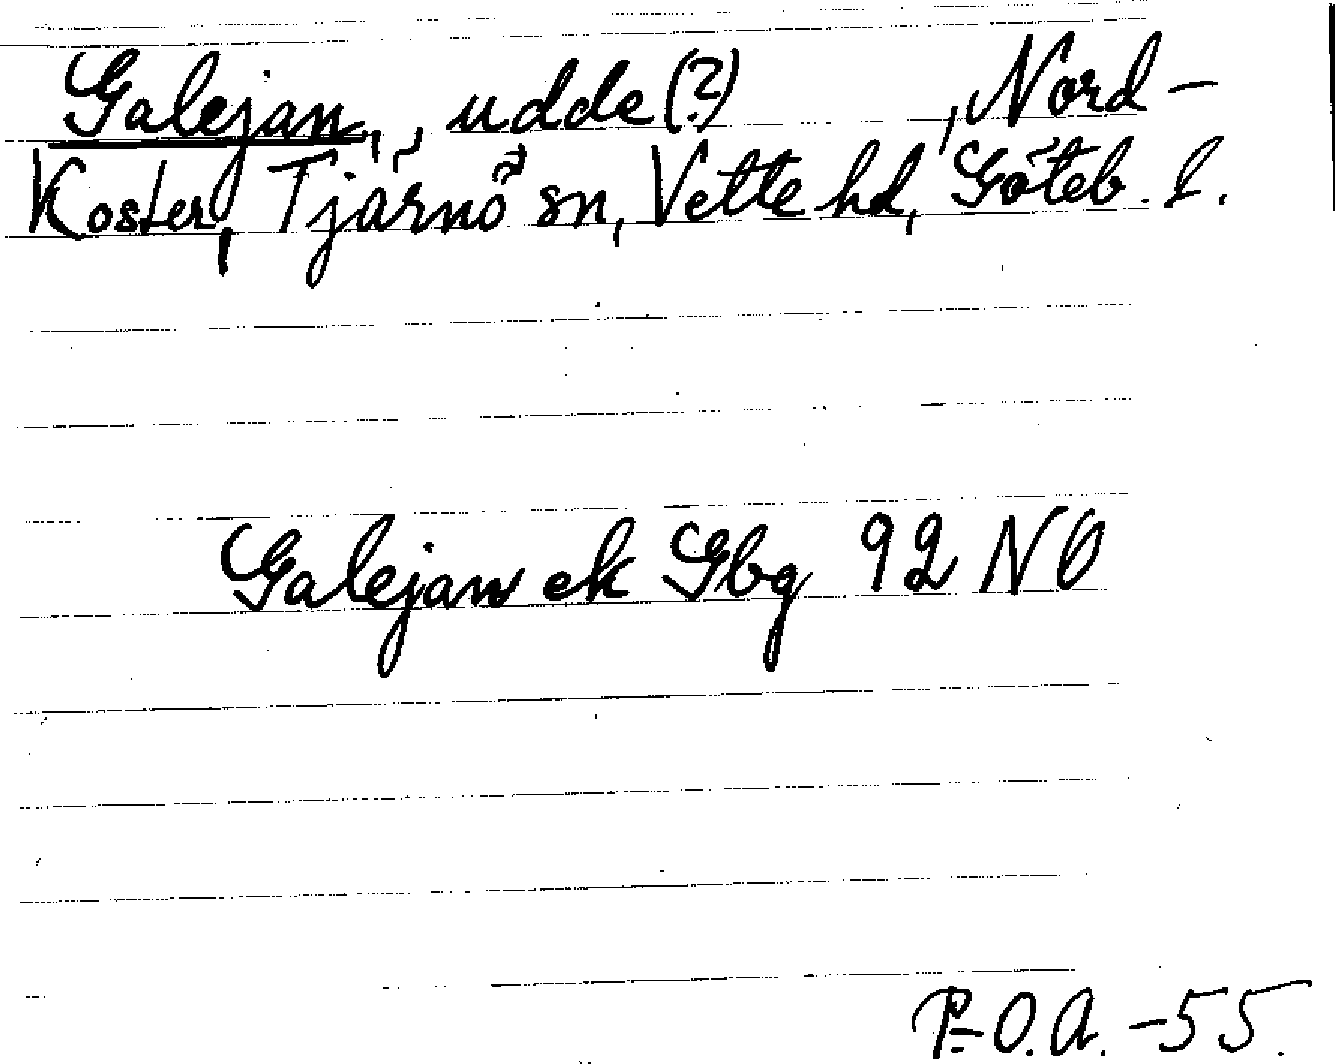 Galejan, udde (?) , Nord-
Koster, Tjärnö sn, Vette hd, Göteb. l.
Galejan ek Gbg 92 NO
P-O.A. -55.